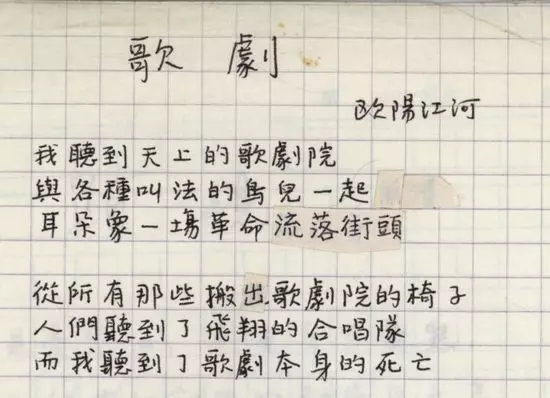 歌劇
欧陽江河
我聽到天上的歌劇院
與各種叫法的鳥兒一起
耳朵象一場革命流落街頭
從所有那些搬出歌劇院的椅子
人們聽到了飛翔的合唱隊
而我聽到了歌劇本身的死亡